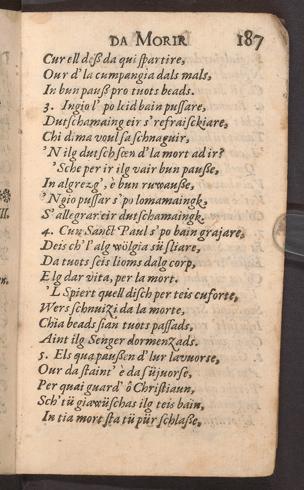 DA MORIR 187
Cur ell deß da qui spartire,
Our d'la cumpangia dals mals,
In bun pauß pro tuots beads.
3. Ingio l' po leid bain pussare,
Dutschamaing eir s'refraisckiare,
Chi dima voul sa schnaguir,
'N ilg dutsch sœn d'la mort ad ir?
'Sche per ir ilg vair bun pauße,
In algrezg', è bun ruwauße,
'Ngio pussar s'po lomamaingk,
S'allegrar eir dutschamaingk.
4. Cur Sanct Paul s'po bain grajare,
Deis ch'l'alg wölgia sü sliare,
Da tuots seis lioms dalg corp,
E lg dar vita, per la mort.
'L Spiert quell disch per teis cuforte,
Wers schnuizi da la morte,
Chia beads sian tuots passads,
Aint ilg Senger dormenzads.
5. Els qua paußen d'lur lavuorse,
Our da staint' è da süjuorse,
Per quai guard' ô Christiaun,
Sch'tü giawüschas ilg teis bain,
In tia mort sta tü pür schlaße,